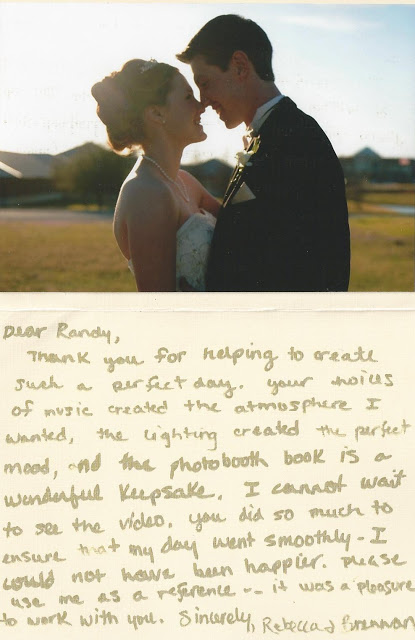 Dear Randy,
Thank you for helping to create
such a perfect day. your choices
of music created the atmosphere I
wanted, the lighting created the perfect
mood, and the photobooth book is a
wonderful keepsake. I cannot wait
to see the video. you did so much to
ensure that my day went smoothly - I
could not have been happier. please
use me as a reference -- it was a pleasure
to work with you. Sincerely, Rebecca & Brennan